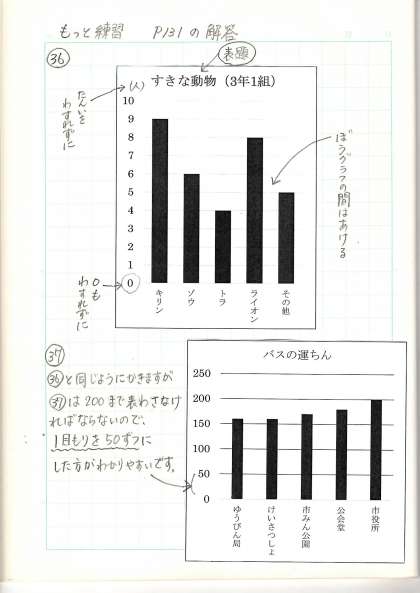 もっと練習 P131の解答
㊱
表題
すきな動物（3年1組）
（人）
10
9
8
7
6
5
4
3
2
1
0
キリン
ゾウ
トラ
ライオン
その他
たんいを
わすれずに
0も
わすれずに
ぼうグラフの間はあける
㊲
㊱と同じようにかきますが
㊲は200まで表わさなけ
ればならないので、
1目もりを50ずつに
した方がわかりやすいです。
バスの運ちん
250
200
150
100
50
0
ゆうびん局
けいさつしょ
市みん公園
公会堂
市役所